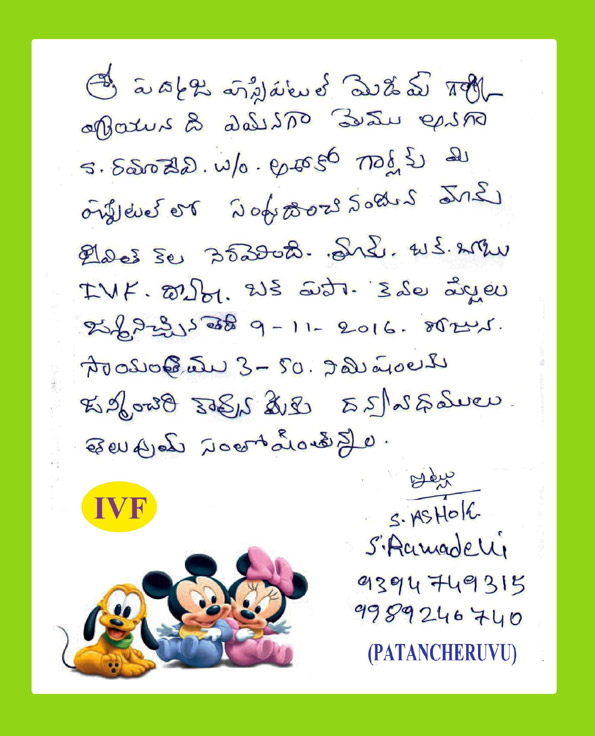 శ్రీ పద్మజ హాస్పిటల్ మేడమ్ గారికి
వ్రాయున ది ఏమనగా మేము అనగా
S. రమాదేవి. w/o. అశోక్ గార్లకు మీ
హాస్పిటల్ లో సంప్రదించి నందున మాకు
జీవిత కల నెరవేరింది. మాకు. ఒక. బాబు
IVF. ద్వారా. ఒక పాప. కవల పిల్లలు
జన్మనిచ్చిన తేది 9-11-2016. రోజున.
సాయంత్రము 3-50. నిమిషంలకు
జన్మించిరి ధన్యవాదములు.
తెలుపుతూ సంతోషిస్తున్నాం.
ఇట్లు
S. ASHOK
S. Ramadevi
9394749315
9989246740
(PATANCHERUVU)
IVF